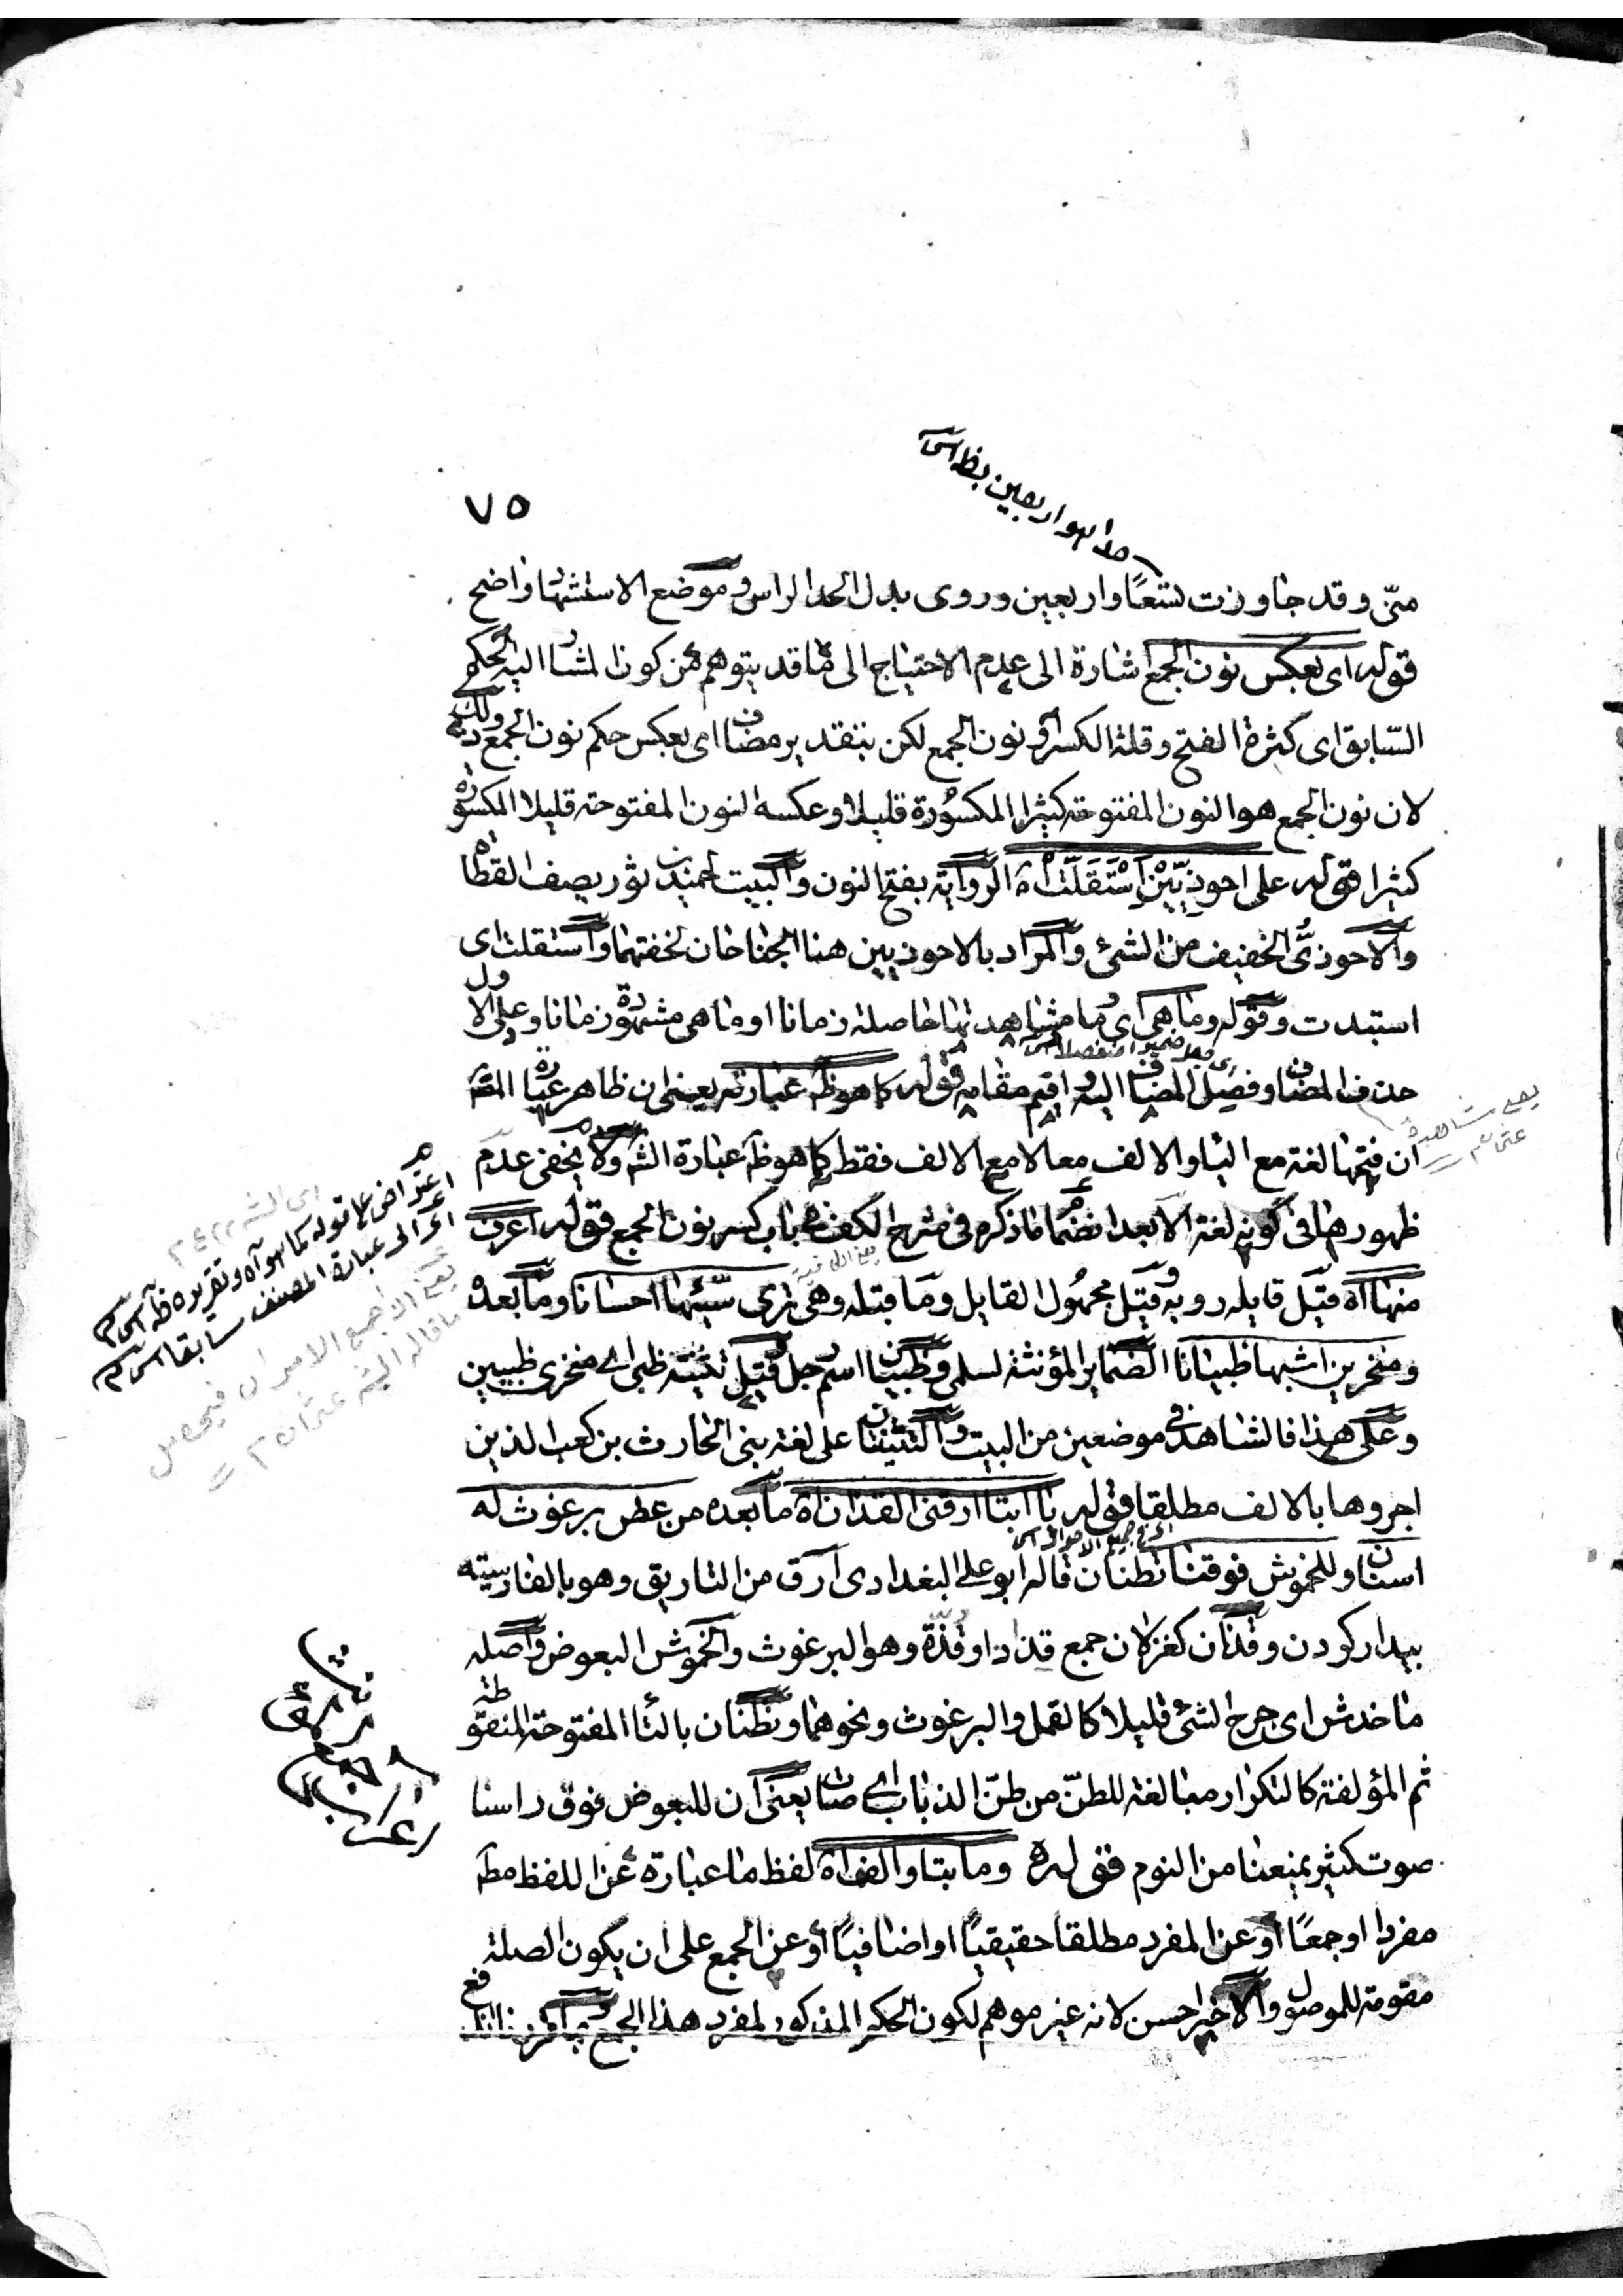 ٧٥
منّى وقد جاوزت تسعًا واربعين وروى بدل الحد الراس وموضع الاستشهاد واضح
قوله اى بعكس نون الجمع اشارة الى عدم الاحتياج الى ما قد يتوهم من كون المشار اليه الحكم
السّابق اى كثرة الفتح وقلة الكسر فى نون الجمع لكن بتقدير مضاف اى بعكس حكم نون الجمع وذلك
لان نون الجمع هو النون المفتوحة كثيرا المكسُورة قليلا وعكسه النون المفتوحة قليلا المكسورة
كثيرا قوله على احوذيّيْنَ اسْتَقَلَّتْ اه الرواية بفتح النون والبيت لحميد بن ثور يصف القطاة
والاحوذىُّ الخفيف من الشئ والمراد بالاحوذيين هنا الجناحان لخفتهما واستقلت اى
استبدت وقوله وما هى اى وما مشاهدتها حاصلة زمانا او ما هى مشهورة زمانا وعلى الاول
حذف المضاف وفصل المضاف اليه واقيم مقامه قوله كما هو ظه عبارته يعنى ان ظاهر عبارة المصَ
ان فتحها لغة مع الياء والالف معا لا مع الالف فقط كما هو ظه عبارة الشه ولا يخفى عدم
ظهورها فى كونه لغة الا بعد انضمام ما ذكره فى شرح الكف فى باب كسر نون الجمع قوله اعرف
منها اه قيل قايله روبة وقيل مجهُول القايل وما قبله وهى ترى سيّئها احسانا وما بعده
ومنخرين اشبها ظبيانا الضماير المؤنثة لسلمى وظبيان اسم رجل وقيل تثنية ظبى اى منخرى ظبيين
وعلى هذا فالشاهد فى موضعين من البيت والتثنيتان على لغة بنى الحارث بن كعب الذين
اجروها بالالف مطلقا قوله يا ابتا ارقنى القذان اه ما بعده من عطس برغوث له
اسنان وللخموش فوقنا تطنان قاله ابو على البغدادى ارق من التاريق وهو بالفارسيته
بيدار كردن وقذان كغزلان جمع قذاذ او قذة وهو البرغوث والخموش البعوض واصله
ما خدش اى جرح الشئ قليلا كالقمل والبرغوث ونحوهما وتطنان بالتاء المفتوحة المنقوطة
ثم المؤلفة كالتكرار مبالغة للطنّ من طنّ الذباب اى صات يعنى ان للبعوض فوق راسنا
صوت كثير يمنعنا من النوم قوله وما بتا والف اه لفظ ما عبارة عن اللفظ مطَ
مفردا او جمعًا او عن المفرد مطلقا حقيقيّا او اضافيّا او عن الجمع على ان يكون الصلة
مقومة للموصول والاخير احسن لانه غير موهم لكون الحكم المذكور لمفرد هذا الجمع
اعتراض على قوله كما هو آه وتقريره ظه
اى الى عبارة المصنف سابقا